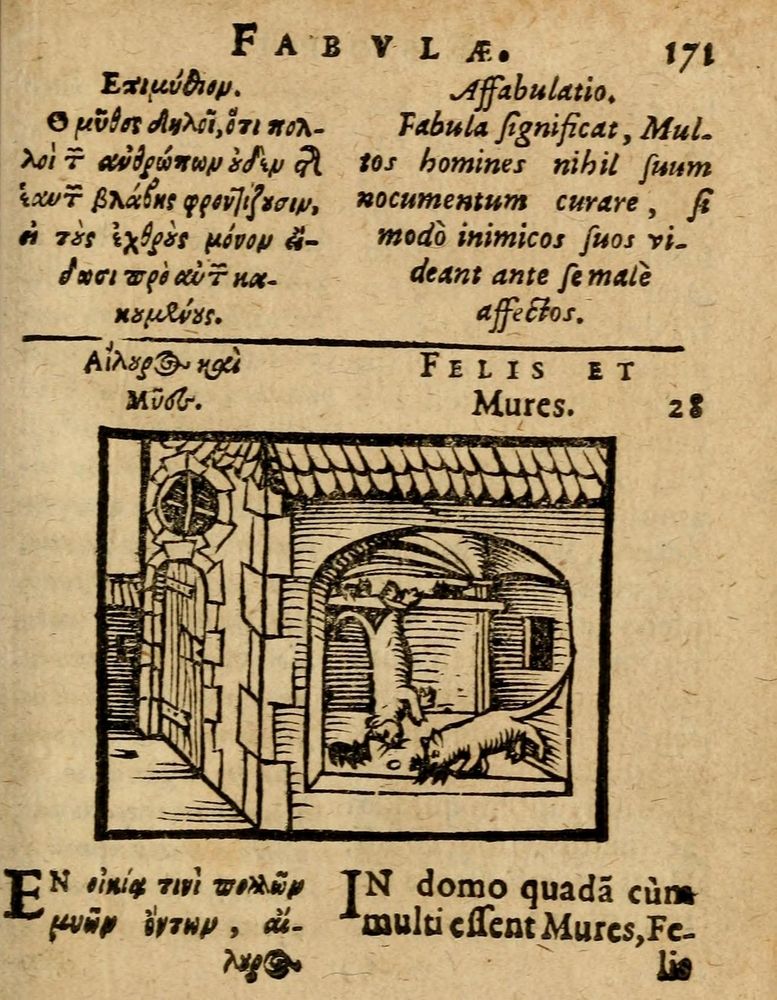 FABVLÆ. 171
Επιμύθιον.
Ο μῦθος δηλοῖ, ὅτι πολ-
λοὶ τῶν ἀνθρώπων οὐδὲν τῆς
ἑαυτῶν βλάβης φροντίζουσιν,
εἰ τοὺς ἐχθροὺς μόνον ἴ-
δωσι πρὸ αὐτῶν κα-
κουμένους.
Affabulatio.
Fabula ſignificat, Mul-
tos homines nihil ſuum
nocumentum curare, ſi
modò inimicos ſuos vi-
deant ante ſe malè
affectos.
Αἴλουρος καὶ
Μῦες.
FELIS ET
Mures. 28
ΕΝ οἰκίᾳ τινὶ πολλῶν
μυῶν ὄντων, αἴ-
λουρος
IN domo quadã cùm
multi eſſent Mures, Fe-
lis